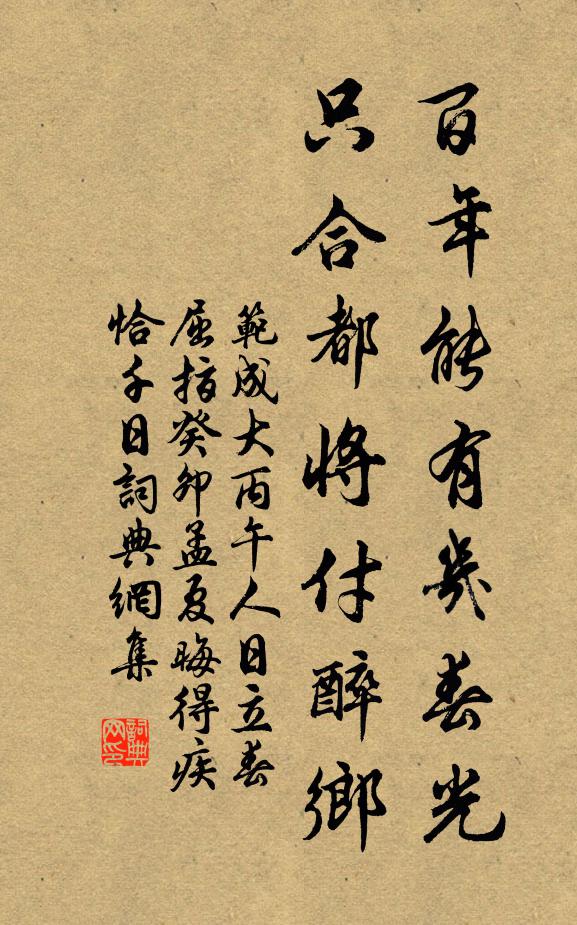 百年能有幾春光
只合都將付醉鄉
範成大丙午人日立春
屈指癸卯孟夏晦得疾
恰千日詞典網集
詞典网印